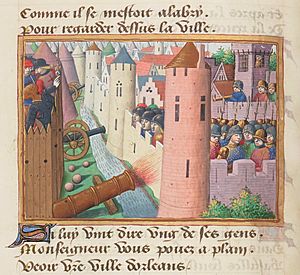 Comme il se mestoit a labry.
Pour regarder dessus la ville.
Si luy vint dire vng de ses gens.
Monseigneur vous pouez a plain
Veoir vre ville dorleans.